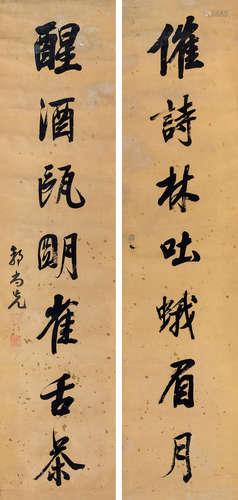 催詩林吐蛾眉月
醒酒甌明雀舌茶
郭尚先